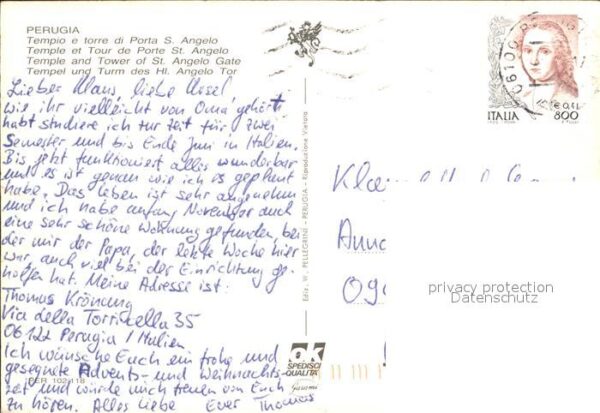 PERUGIA
Tempio e torre di Porta S. Angelo
Temple et Tour de Porte St. Angelo
Temple and Tower of St. Angelo Gate
Tempel und Turm des Hl. Angelo Tor
Lieber Klaus, liebe Ursel
wie ihr vielleicht von Oma gehört
habt studiere ich zur Zeit für zwei
Semester und bis Ende Juni in Italien.
Bis jetzt funktioniert alles wunderbar
und es ist genau wie ich es geplant
habe. Das Leben ist sehr angenehm
und ich habe anfang November auch
eine sehr schöne Wohnung gefunden, bei
der mir der Papa, der letzte Woche hier
war, auch viel bei der Einrichtung ge-
holfen hat. Meine Adresse ist:
Thomas Krönung
Via della Torricella 35
06122 Perugia / Italien
Ich wünsche Euch ein frohe und
gesegnete Advents- und Weihnachts-
zeit und würde mich freuen von Euch
zu hören. Alles Liebe Euer Thomas
PER 102-118
Ediz. W. PELLEGRINI - PERUGIA - Riproduzione Vietata
ok
SPEDISCI
QUALITÀ
06100
€ 0,41
ITALIA 800
Anna
099
privacy protection
Datenschutz